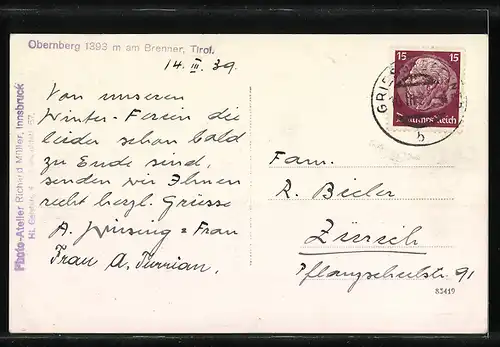 Obernberg 1393 m am Brenner, Tirol.
14. III. 39.
Von unseren
Winter-Ferien die
leider schon bald
zu Ende sind,
senden wir Ihnen
recht herzl. Grüsse
A. + Frau
Frau A.
Photo-Atelier Richard Müller, Innsbruck
15 15
Deutsches Reich
GRIES
b
Fam.
R. Bieler
Zürich
Pflanzschulstr. 91
83419